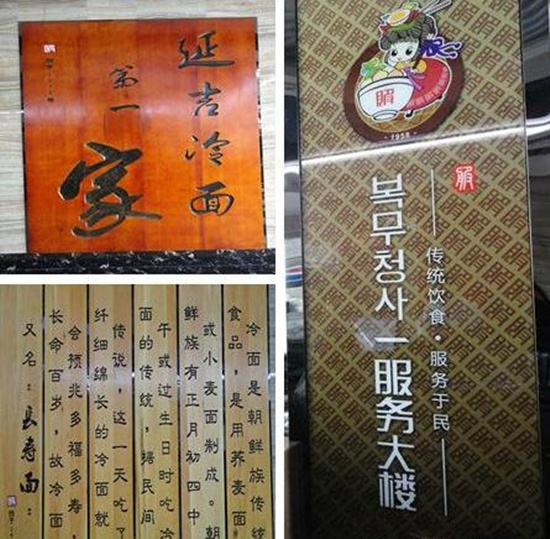 延吉冷面
第一
家
冷面是朝鲜族传统
食品，是用荞麦面
或小麦面制成。朝
鲜族有正月初四中
午或过生日时吃冷
面的传统，据民间
传说，这一天吃了
纤细绵长的冷面就
会预兆多福多寿，
长命百岁，故冷面
又名“长寿面”。
·1958·
服
传统饮食·服务于民
복무청사—服务大楼